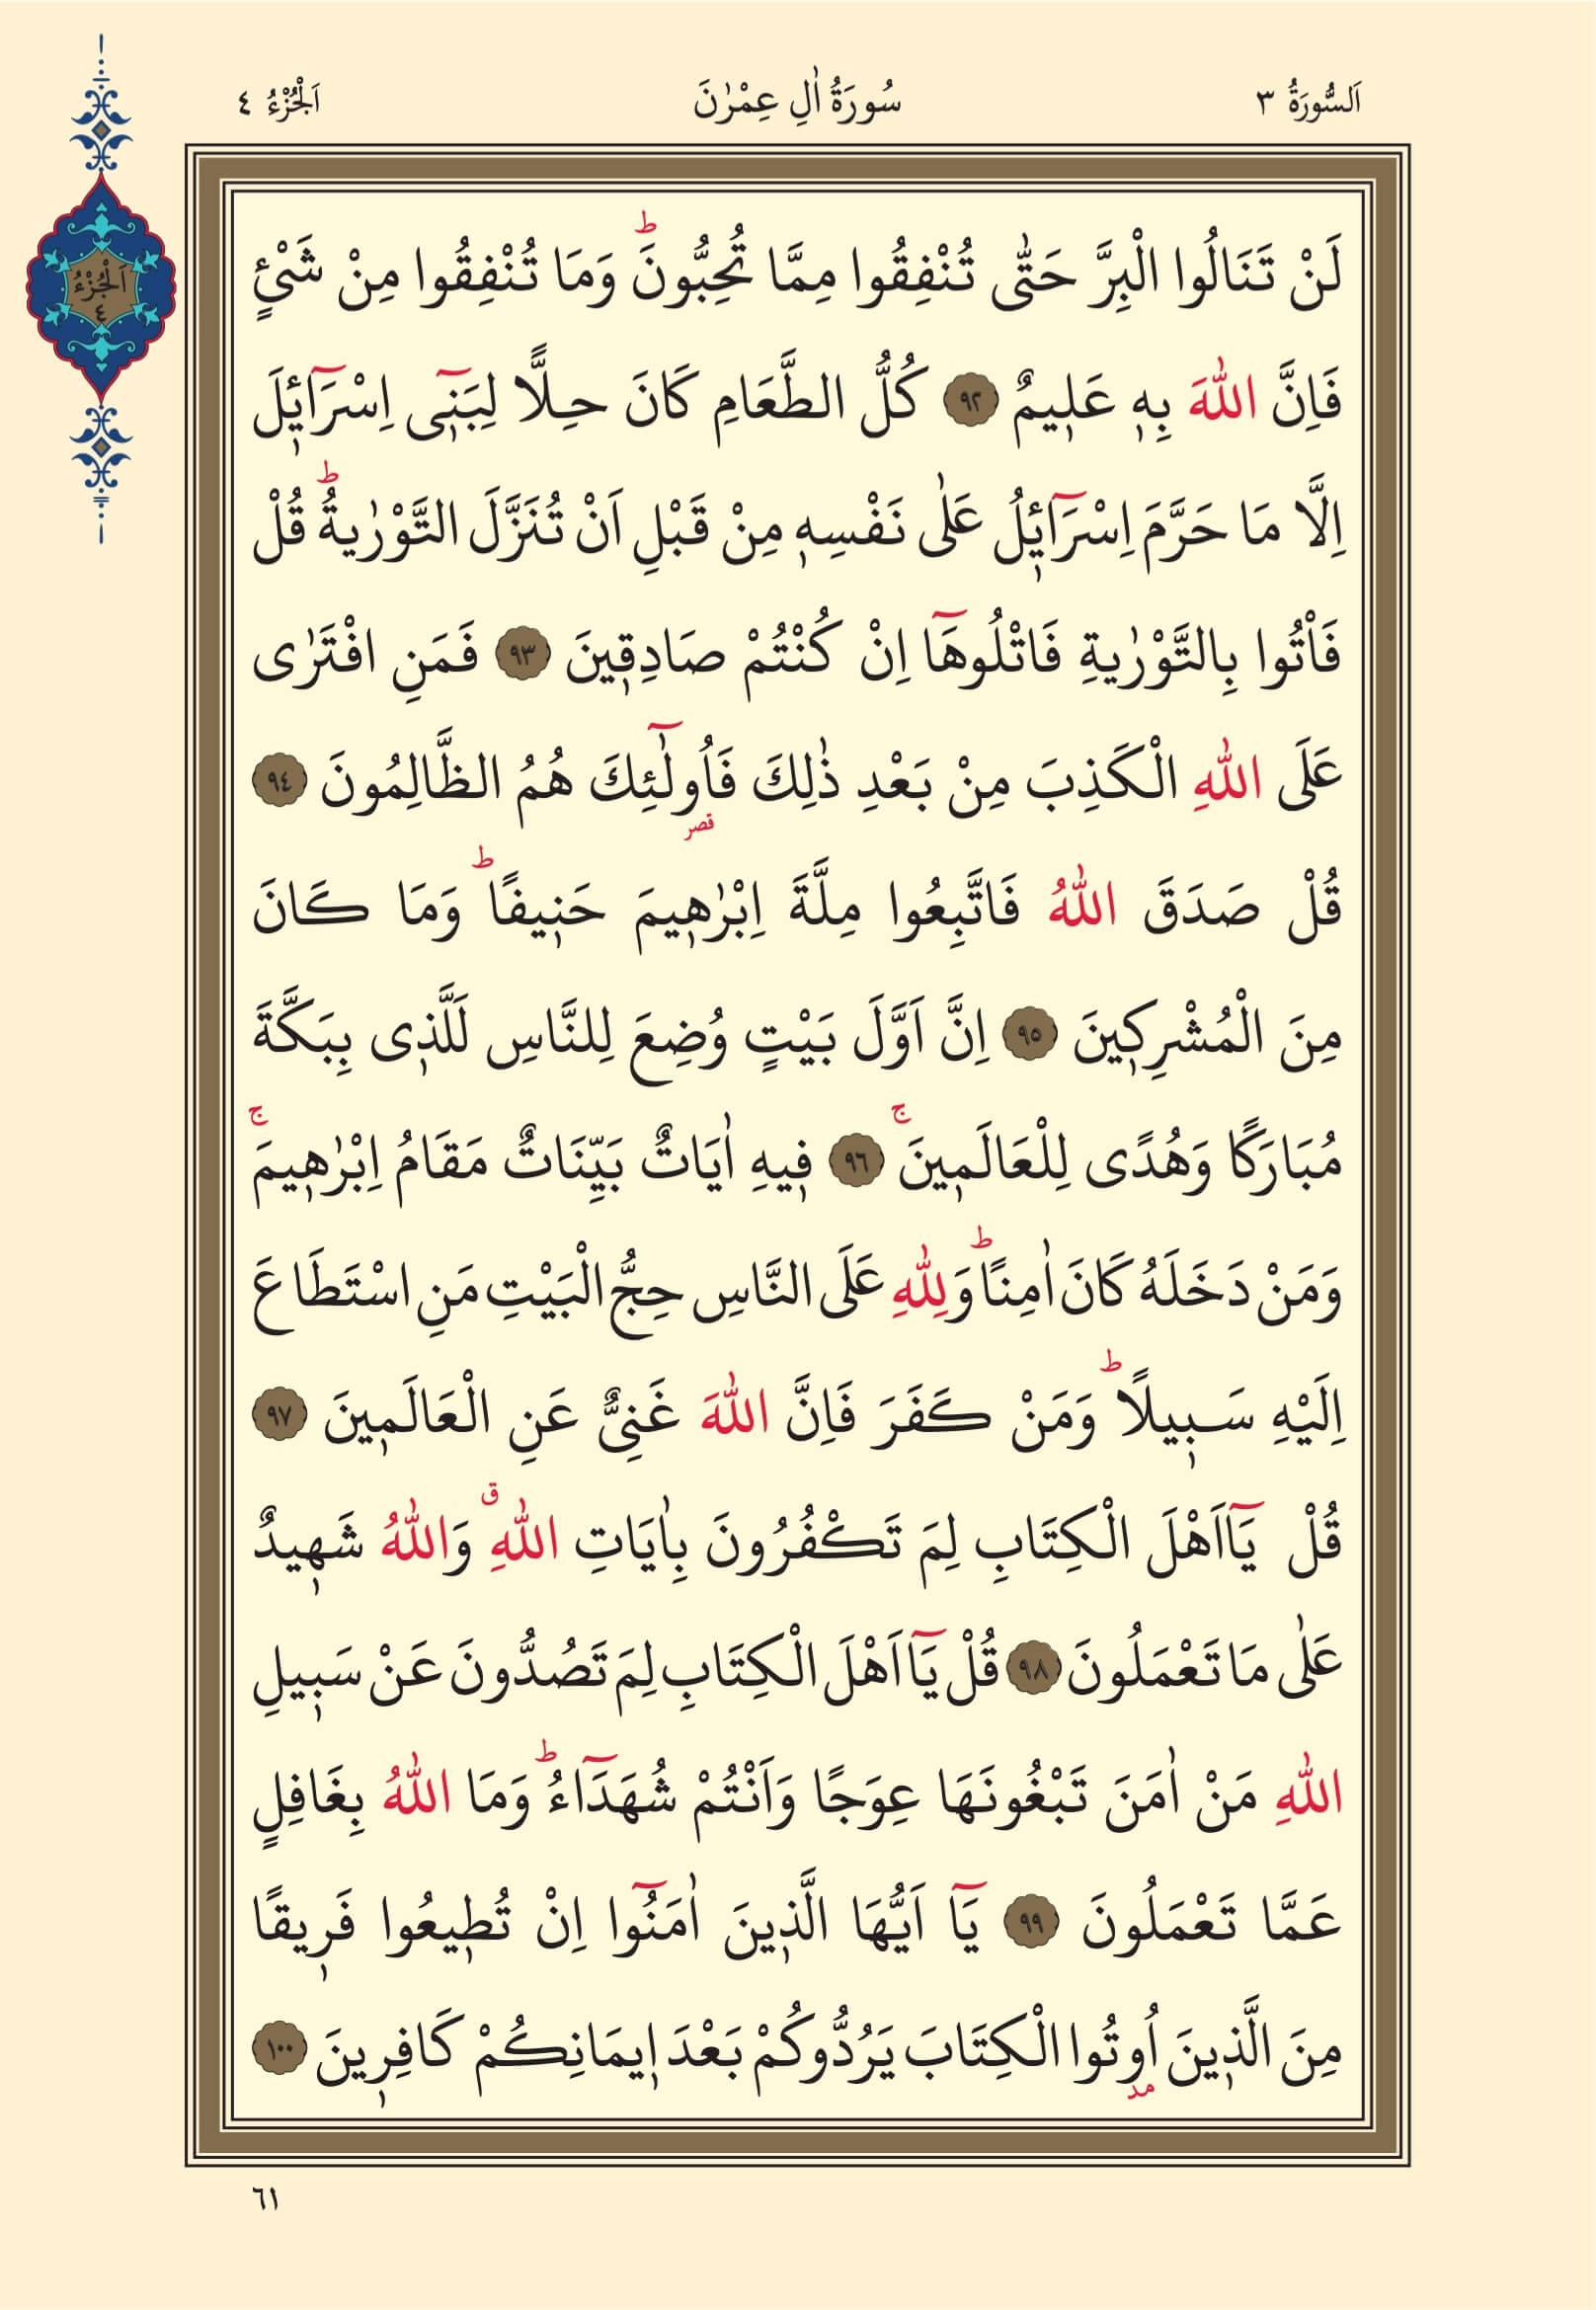 اَلسُّورَةُ ٣ سُورَةُ اٰلِ عِمْرٰنَ اَلْجُزْءُ ٤
اَلْجُزْءُ
٤
لَنْ تَنَالُوا الْبِرَّ حَتّٰى تُنْفِقُوا مِمَّا تُحِبُّونَۜ وَمَا تُنْفِقُوا مِنْ شَيْءٍ
فَاِنَّ اللّٰهَ بِه۪ عَل۪يمٌ ﴿٩٢﴾ كُلُّ الطَّعَامِ كَانَ حِلًّا لِبَن۪ٓي اِسْرَٓائ۪لَ
اِلَّا مَا حَرَّمَ اِسْرَٓائ۪لُ عَلٰى نَفْسِه۪ مِنْ قَبْلِ اَنْ تُنَزَّلَ التَّوْرٰيةُۜ قُلْ
فَأْتُوا بِالتَّوْرٰيةِ فَاتْلُوهَٓا اِنْ كُنْتُمْ صَادِق۪ينَ ﴿٩٣﴾ فَمَنِ افْتَرٰى
عَلَى اللّٰهِ الْكَذِبَ مِنْ بَعْدِ ذٰلِكَ فَاُو۬لٰٓئِكَ هُمُ الظَّالِمُونَ ﴿٩٤﴾
قصر
قُلْ صَدَقَ اللّٰهُ فَاتَّبِعُوا مِلَّةَ اِبْرٰه۪يمَ حَن۪يفًاۜ وَمَا كَانَ
مِنَ الْمُشْرِك۪ينَ ﴿٩٥﴾ اِنَّ اَوَّلَ بَيْتٍ وُضِعَ لِلنَّاسِ لَلَّذ۪ي بِبَكَّةَ
مُبَارَكًا وَهُدًى لِلْعَالَم۪ينَۚ ﴿٩٦﴾ ف۪يهِ اٰيَاتٌ بَيِّنَاتٌ مَقَامُ اِبْرٰه۪يمَۚ
وَمَنْ دَخَلَهُ كَانَ اٰمِنًاۜ وَلِلّٰهِ عَلَى النَّاسِ حِجُّ الْبَيْتِ مَنِ اسْتَطَاعَ
اِلَيْهِ سَب۪يلًاۜ وَمَنْ كَفَرَ فَاِنَّ اللّٰهَ غَنِيٌّ عَنِ الْعَالَم۪ينَ ﴿٩٧﴾
قُلْ يَٓا اَهْلَ الْكِتَابِ لِمَ تَكْفُرُونَ بِاٰيَاتِ اللّٰهِۗ وَاللّٰهُ شَه۪يدٌ
عَلٰى مَا تَعْمَلُونَ ﴿٩٨﴾ قُلْ يَٓا اَهْلَ الْكِتَابِ لِمَ تَصُدُّونَ عَنْ سَب۪يلِ
اللّٰهِ مَنْ اٰمَنَ تَبْغُونَهَا عِوَجًا وَاَنْتُمْ شُهَدَٓاءُۜ وَمَا اللّٰهُ بِغَافِلٍ
عَمَّا تَعْمَلُونَ ﴿٩٩﴾ يَٓا اَيُّهَا الَّذ۪ينَ اٰمَنُٓوا اِنْ تُط۪يعُوا فَر۪يقًا
مِنَ الَّذ۪ينَ اُو۫تُوا الْكِتَابَ يَرُدُّوكُمْ بَعْدَ ا۪يمَانِكُمْ كَافِر۪ينَ ﴿١٠٠﴾
مد
٦١